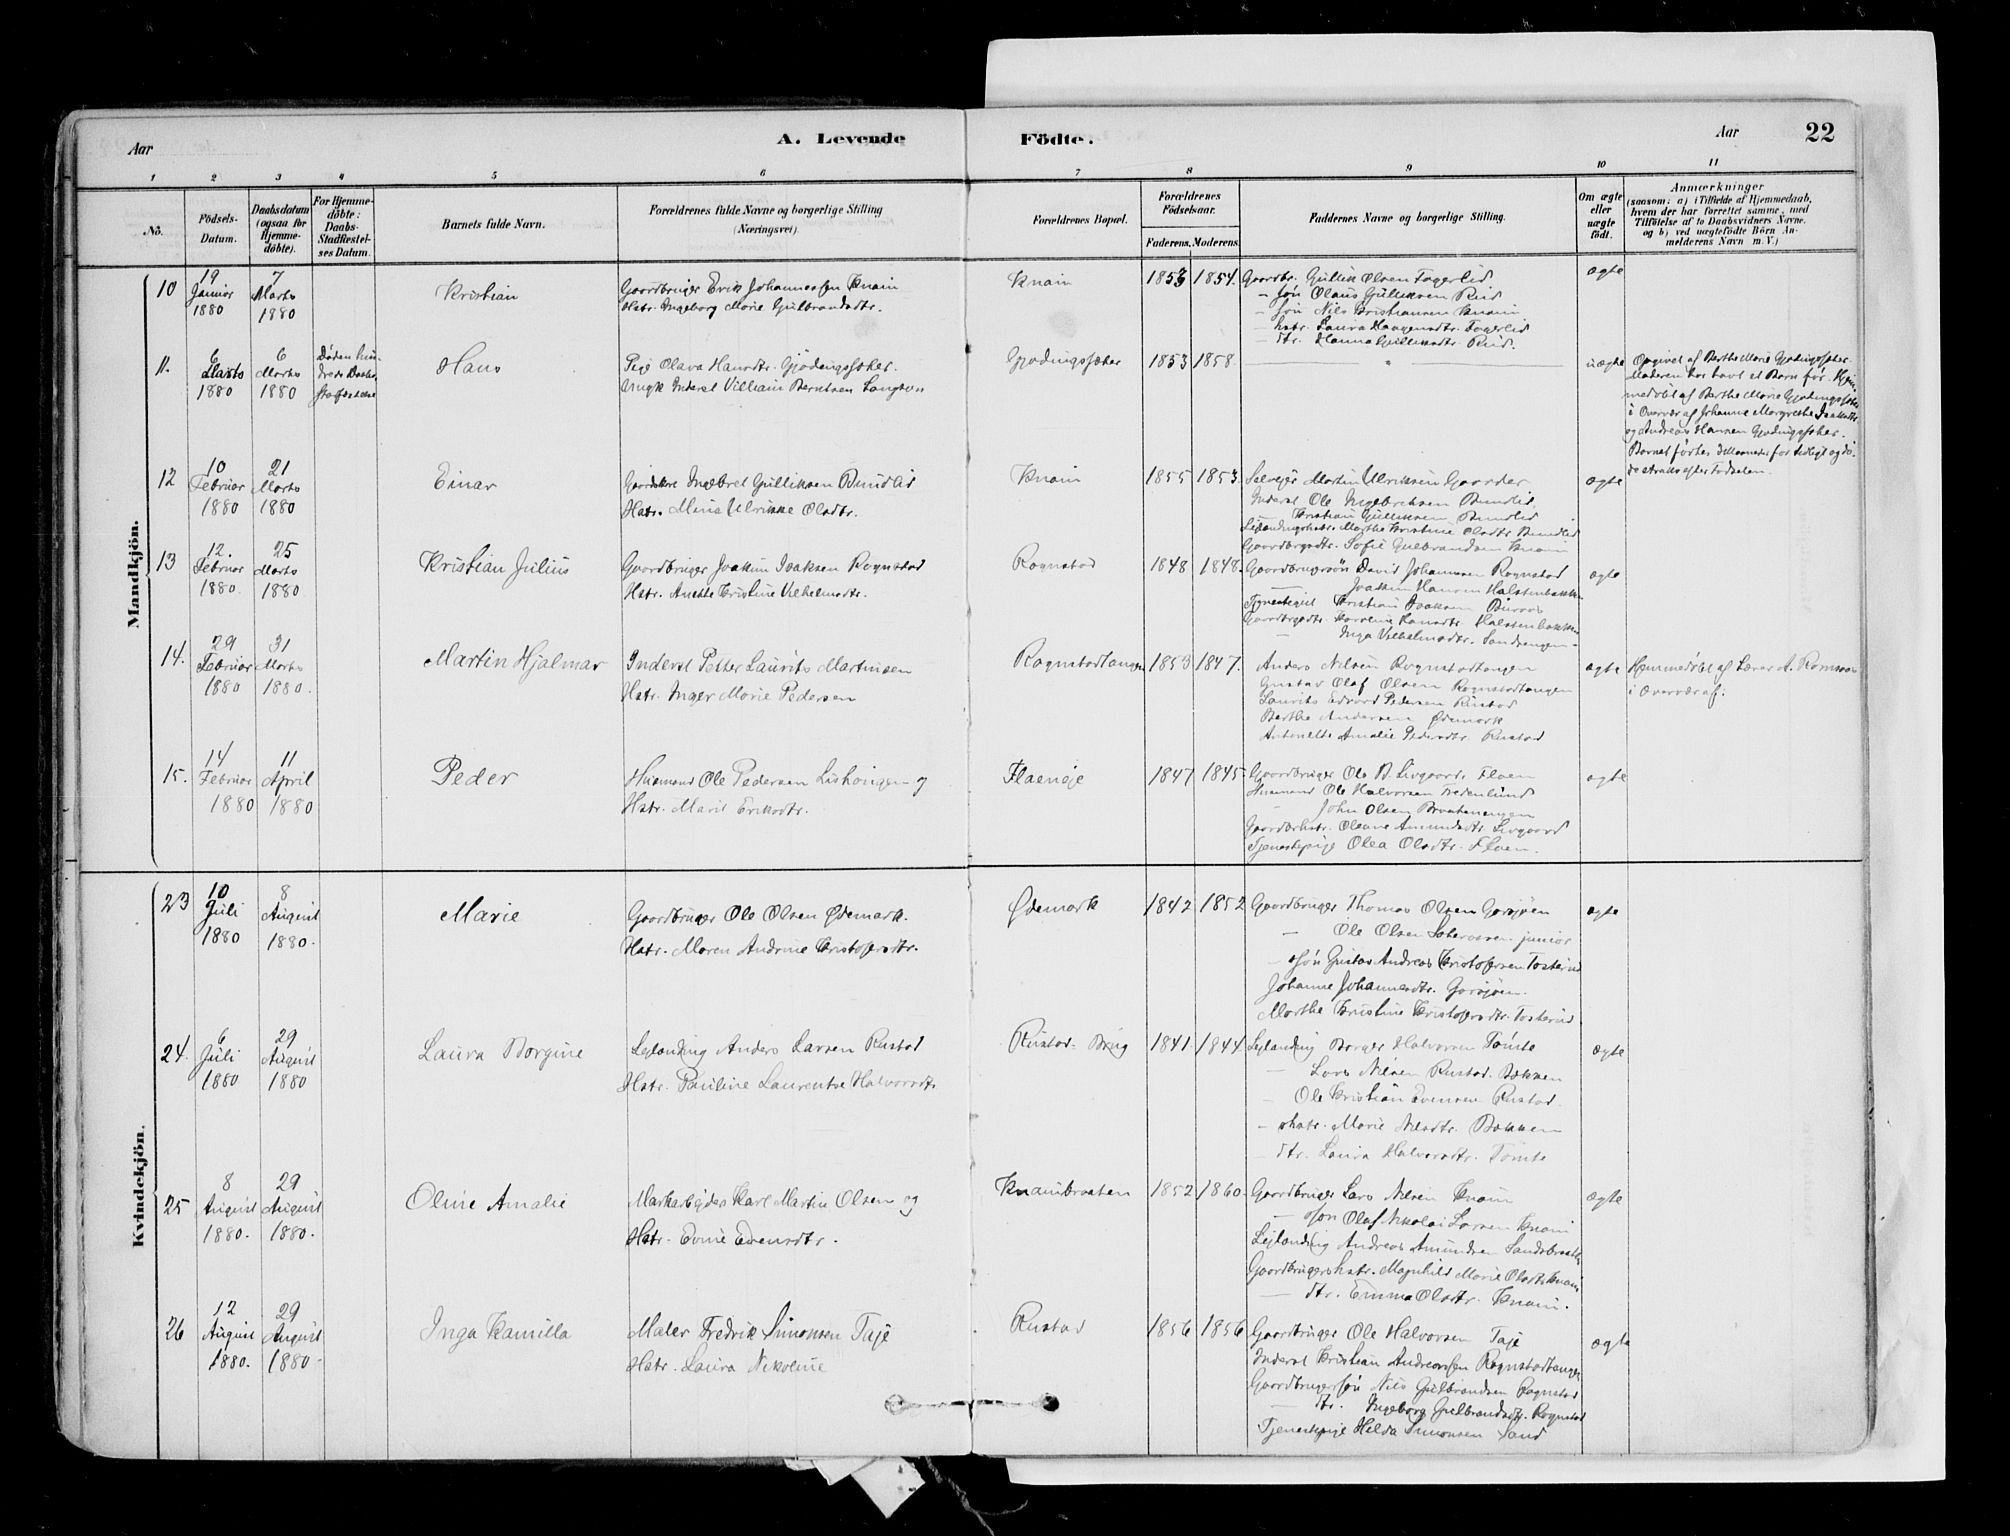 Aar
A. Levende
Födte.
Aar
22
1 2 3 4 5 6 7 8 9 10 11
No.
Födsels-Datum.
Daabsdatum (ogsaa for Hjemmedöbte).
For Hjemmedöbte: Daabs-Stadfæstelses Datum.
Barnets fulde Navn.
Forældrenes fulde Navne og borgerlige Stilling (Næringsvei).
Forældrenes Bopæl.
Forældrenes Födselsaar.
Faderens. Moderens.
Faddernes Navne og borgerlige Stilling.
Om ægte eller uægte födt.
Anmærkninger
(saasom: a) i Tilfælde af Hjemmedaab,
hvem der har forrettet samme, med
Tilföielse af to Daabsvidners Navne.
og b) ved uægtefödte Börn Anmelderens Navn m.V.)
Mandkjön.
10
19 Januar 1880
7 Marts 1880
Kristian
Gaardbruger Erik Johannessen Knain
Hstr. Ingeborg Marie Gulbrandsdtr.
Knain
1853 1854.
Gaardbr. Gullik Olsen Fagerlid
- søn Olaus Gulliksen Rud
- søn Nils Kristiansen Knain
- hstr. Laura Haagensdtr. Fagerlid
- dtr. Hanna Gulliksdtr. Rud.
ægte
11.
6 Marts 1880
6 Marts 1880
Døden
Hans
Pige Olava Hansdtr. Gjødingssæter.
Ungk Inderst Villiam Berntsen
Gjødingssæter
1853 1858.
uægte
Opgivet af Berthe Marie Gjødingssæter.
Moderen har havt et Barn før. Hjemmedøbt af Berthe Marie Gjødingssæter
i Overvær af Johanne Margrethe
og Andreas Hansen Gjødingssæter.
Barnet fødtes
straks efter Fødselen.
12
10 Februar 1880
21 Marts 1880
Einar
Ingebret Gulliksen Bundlid
Hstr. Mina Ulrikke Olsdtr.
Knain
1855 1853.
Selveier Martin Ulriksen Gaarder
Inderst Ole Ingebrethsen Bundlid
- Kristian Gulliksen Bundlid
Marthe Kristine Olsdtr. Bundlid
Sofie Gulbrandsen Knain
ægte
13
12. Februar 1880.
25 Marts 1880
Kristian Julius
Gaardbruger Joakim Isaksen Rognstad
Hstr. Anette Cristine Vilhelmsdtr.
Rognstad
1848 1848.
Gaardbrugersøn David Johannsen Rognstad
Joakim Hansen Halstenbakken
Kristian Isaksen
Karoline Hansdtr. Halstenbakken
- Inga Vilhelmsdtr. Sandvangen.
ægte
14.
29 Februar 1880
31 Marts 1880.
Martin Hjalmar
Inderst Petter Laurits Martinsen
Hstr. Inger Marie Pedersen
Rognstadtangen
1853 1847.
Anders Nilsen Rognstadtangen
Gustav Olaf Olsen Rognstadtangen
Laurits Edvard Pedersen Rustad
Berthe Andersen Ødemark
Antonette Amalie Pedersdtr. Rustad
ægte
Hjemmedøbt af Lærer A. Ramsoas
i Overvær af:
15.
14 Februar 1880
11 April 1880
Peder
Husmand Ole Pedersen
Hstr. Marit Eriksdtr.
Flaeneje
1847 1845
Gaardbruger Ole B. Livgaard. Floen
Husmand Ole Halvorsen Sedenlund
- John Olsen Braatenengen
Gaardbrhstr. Oleane Amundsdtr. Livgaard
Tjenestepige Olea Olsdtr. Floen.
ægte
Kvindekjön.
23
10 Juli 1880
8 August 1880.
Marie
Gaardbruger Ole Olsen Ødemark.
Hstr. Maren Andrine Kristofersdtr.
Ødemark
1842 1852
Gaardbruger Thomas Olsen Garsjøen
- Ole Olsen junior
- søn Gustav Andreas Kristofersen Tosterud
Johanne Johannesdtr. Garsjøen.
Marthe Kristine Kristofersdtr. Tosterud
ægte
24.
6 Juli 1880
29 August 1880
Laura Borgine
Lejlænding Anders Larsen Rustad
Hstr. Pauline Laurentse Halvorsdtr.
Rustad-Brug
1841. 1844.
Lejlænding Borger Halvorsen Tömte
- Lars Nilsen Rustad-Bakken
- Ole Kristian Evensen Rustad.
- shstr. Marie Nilsdtr. Bakken
- dtr. Laura Halvorsdtr. Tömte
ægte
25
8 August 1880.
29 August 1880.
Oline Amalie
Markarbejder Karl Martin Olsen og
Hstr. Evine Evensdtr.
Knainbraaten
1852 1860.
Gaardbruger Lars Nilsen Knain
- søn Olaf Nikolai Larsen Knain
Lejlænding Andreas Amundsen Sandsbraaten
Gaardbrugershstr. Magnhild Marie Olsdtr. Knain
- dtr. Emma Olsdtr. Knain.
ægte
26
12 August 1880.
29 August 1880
Inga Kamilla
Maler Fredrik Simonsen Taje
Hstr. Laura Nikoline
Rustad
1856 1856
Gaardbruger Ole Halvorsen Taje
Inderst Kristian Andreassen Rognstadtangen
Gaardbrugersøn Nils Gulbrandsen Rognstad
- dtr. Ingeborg Gulbrandsdtr. Rognstad
Tjenestepige Hilda Simonsen Sand
ægte